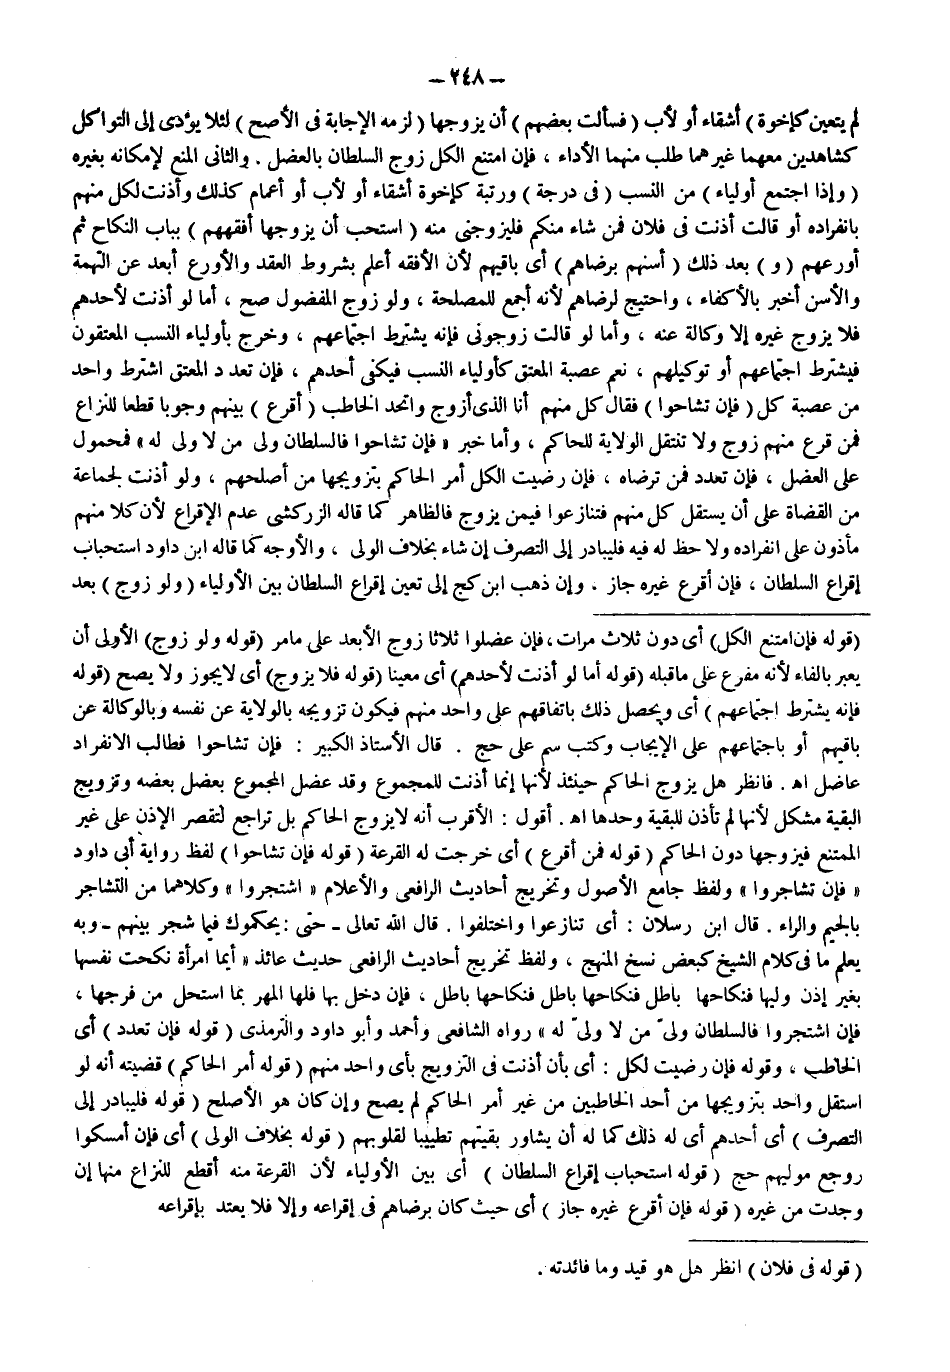 – ٢٤٨ –
لم يتعين كإخوة ) أشقاء أو لأب ( فسألت بعضهم ) أن يزوجها ( لزمه الإجابة فى الأصح ) لئلا يؤدى إلى التواكل
كشاهدين معهما غيرهما طلب منهما الأداء ، فإن امتنع الكل زوج السلطان بالعضل . والثانى المنع لإمكانه بغيره
( وإذا اجتمع أولياء ) من النسب ( فى درجة ) ورتبة كإخوة أشقاء أو لأب أو أعمام كذلك وأذنت لكل منهم
بانفراده أو قالت أذنت فى فلان فمن شاء منكم فليزوجنى منه ( استحب أن يزوجها أفقههم ) بباب النكاح ثم
أورعهم ( و ) بعد ذلك ( أسنهم برضاهم ) أى باقيهم لأن الأفقه أعلم بشروط العقد والأورع أبعد عن التهمة
والأسن أخبر بالأكفاء ، واحتيج لرضاهم لأنه أجمع للمصلحة ، ولو زوج المفضول صح ، أما لو أذنت لأحدهم
فلا يزوج غيره إلا وكالة عنه ، وأما لو قالت زوجونى فإنه يشترط اجتماعهم ، وخرج بأولياء النسب المعتقون
فيشترط اجتماعهم أو توكيلهم ، نعم عصبة المعتق كأولياء النسب فيكفى أحدهم ، فإن تعدد المعتق اشترط واحد
من عصبة كل ( فإن تشاحوا ) فقال كل منهم أنا الذى أزوج واتحد الخاطب ( أقرع ) بينهم وجوبا قطعا للنزاع
فمن قرع منهم زوج ولا تنتقل الولاية للحاكم ، وأما خبر « فإن تشاحوا فالسلطان ولى من لا ولى له » فمحمول
على العضل ، فإن تعدد فمن ترضاه ، فإن رضيت الكل أمر الحاكم بتزويجها من أصلحهم ، ولو أذنت لجماعة
من القضاة على أن يستقل كل منهم فتنازعوا فيمن يزوج فالظاهر كما قاله الزركشى عدم الإقراع لأن كلا منهم
مأذون على انفراده ولا حظ له فيه فليبادر إلى التصرف إن شاء بخلاف الولى ، والأوجه كما قاله ابن داود استحباب
إقراع السلطان ، فإن أقرع غيره جاز . وإن ذهب ابن كج إلى تعين إقراع السلطان بين الأولياء ( ولو زوج ) بعد
(قوله فإن امتنع الكل) أى دون ثلاث مرات، فإن عضلوا ثلاثا زوج الأبعد على مامر (قوله ولو زوج) الأولى أن
يعبر بالفاء لأنه مفرع على ماقبله (قوله أما لو أذنت لأحدهم) أى معينا (قوله فلا يزوج) أى لايجوز ولا يصح (قوله
فإنه يشترط اجتماعهم ) أى ويحصل ذلك باتفاقهم على واحد منهم فيكون تزويجه بالولاية عن نفسه وبالوكالة عن
باقيهم أو باجتماعهم على الإيجاب وكتب سم على حج . قال الأستاذ الكبير : فإن تشاحوا فطالب الانفراد
عاضل اهـ . فانظر هل يزوج الحاكم حينئذ لأنها إنما أذنت للمجموع وقد عضل المجموع بعضل بعضه وتزويج
البقية مشكل لأنها لم تأذن للبقية وحدها اهـ . أقول : الأقرب أنه لايزوج الحاكم بل تراجع لتقصر الإذن على غير
الممتنع فيزوجها دون الحاكم ( قوله فمن أقرع ) أى خرجت له القرعة ( قوله فإن تشاحوا ) لفظ رواية أبى داود
« فإن تشاجروا » ولفظ جامع الأصول وتخريج أحاديث الرافعى والأعلام « اشتجروا » وكلاهما من التشاجر
بالجيم والراء . قال ابن رسلان : أى تنازعوا واختلفوا . قال الله تعالى ـ حتى : يحكموك فيما شجر بينهم ـ وبه
يعلم ما فى كلام الشيخ كبعض نسخ المنهج ، ولفظ تخريج أحاديث الرافعى حديث عائذ « أيما امرأة نكحت نفسها
بغير إذن وليها فنكاحها باطل فنكاحها باطل فنكاحها باطل ، فإن دخل بها فلها المهر بما استحل من فرجها ،
فإن اشتجروا فالسلطان ولىّ من لا ولىّ له » رواه الشافعى وأحمد وأبو داود والترمذى ( قوله فإن تعدد ) أى
الخاطب ، وقوله فإن رضيت لكل : أى بأن أذنت فى التزويج بأى واحد منهم ( قوله أمر الحاكم ) قضيته أنه لو
استقل واحد بتزويجها من أحد الخاطبين من غير أمر الحاكم لم يصح وإن كان هو الأصلح ( قوله فليبادر إلى
التصرف ) أى أحدهم أى له ذلك كما له أن يشاور بقيتهم تطييبا لقلوبهم ( قوله بخلاف الولى ) أى فإن أمسكوا
روجع موليهم حج ( قوله استحباب إقراع السلطان ) أى بين الأولياء لأن القرعة منه أقطع للنزاع منها إن
وجدت من غيره ( قوله فإن أقرع غيره جاز ) أى حيث كان برضاهم فى إقراعه وإلا فلا يعتد بإقراعه
( قوله فى فلان ) انظر هل هو قيد وما فائدته .